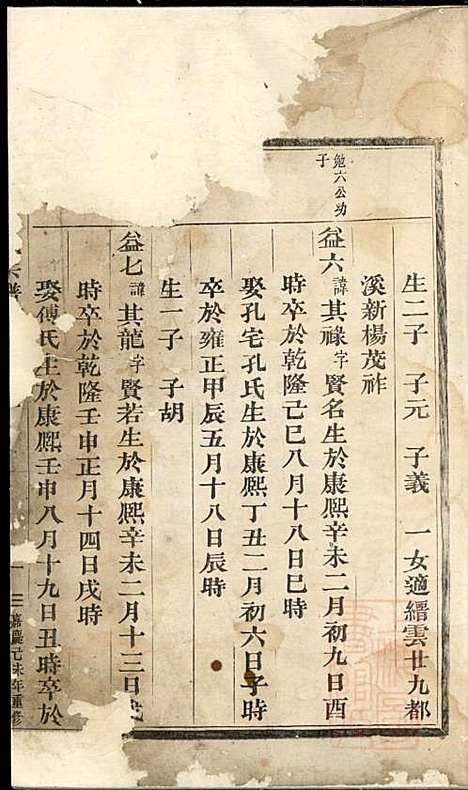 勉六公幼
子
生二子 子元 子義 一女適縉雲廿九都
溪新楊茂祚
益六諱其祿字賢名生於康熙辛未二月初九日酉
時卒於乾隆己巳八月十八日巳時
娶孔宅孔氏生於康熙丁丑二月初六日子時
卒於雍正甲辰五月十八日辰時
生一子 子胡
益七諱其龍字賢若生於康熙辛未二月十三日戌
時卒於乾隆壬申正月十四日戌時
娶傅氏生於康熙壬申八月十九日丑時卒於
嘉慶己未年重修